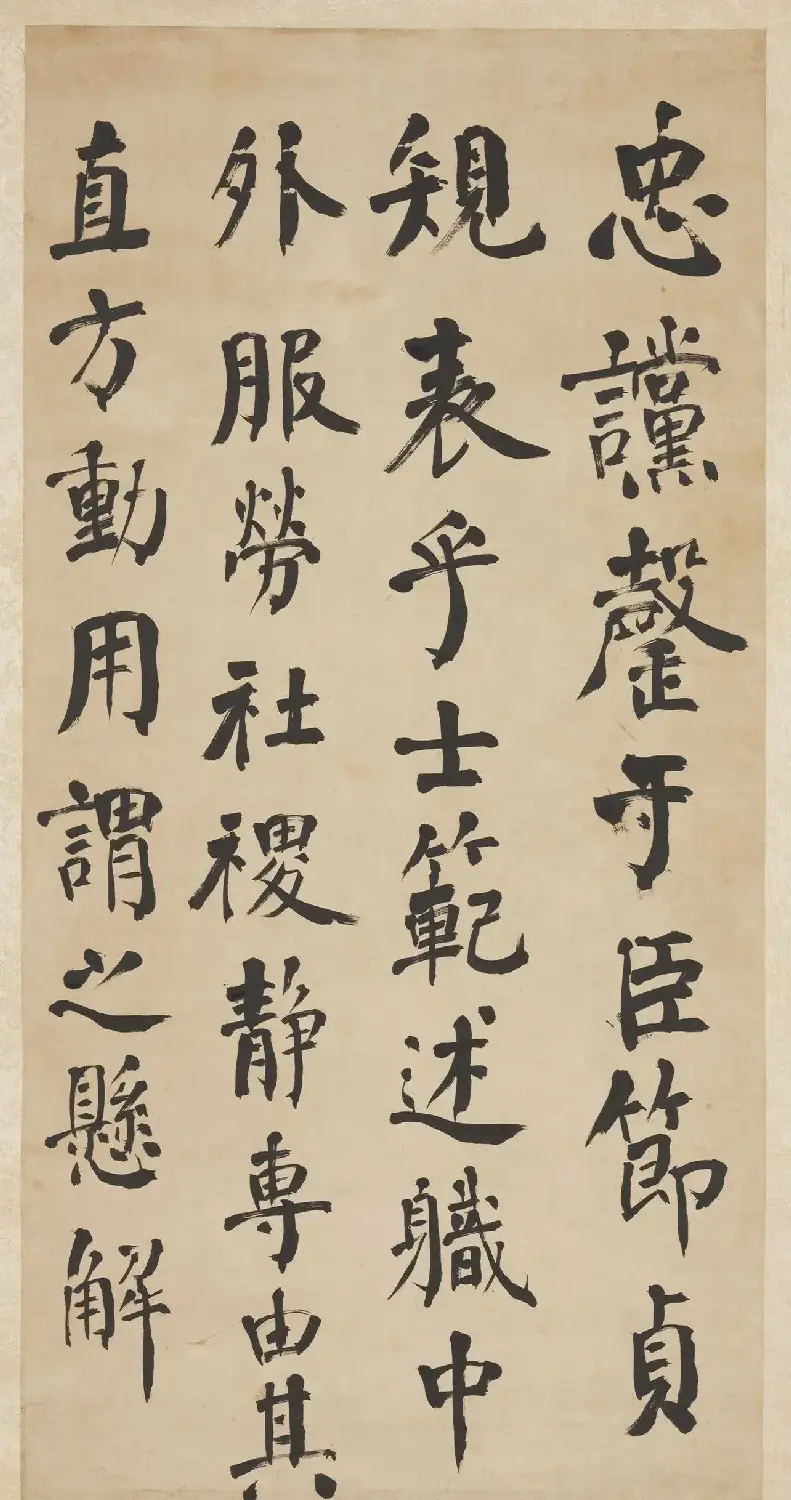 忠讜罄于臣節貞
規表乎士範述職中
外服勞社稷靜專由其
直方動用謂之懸解